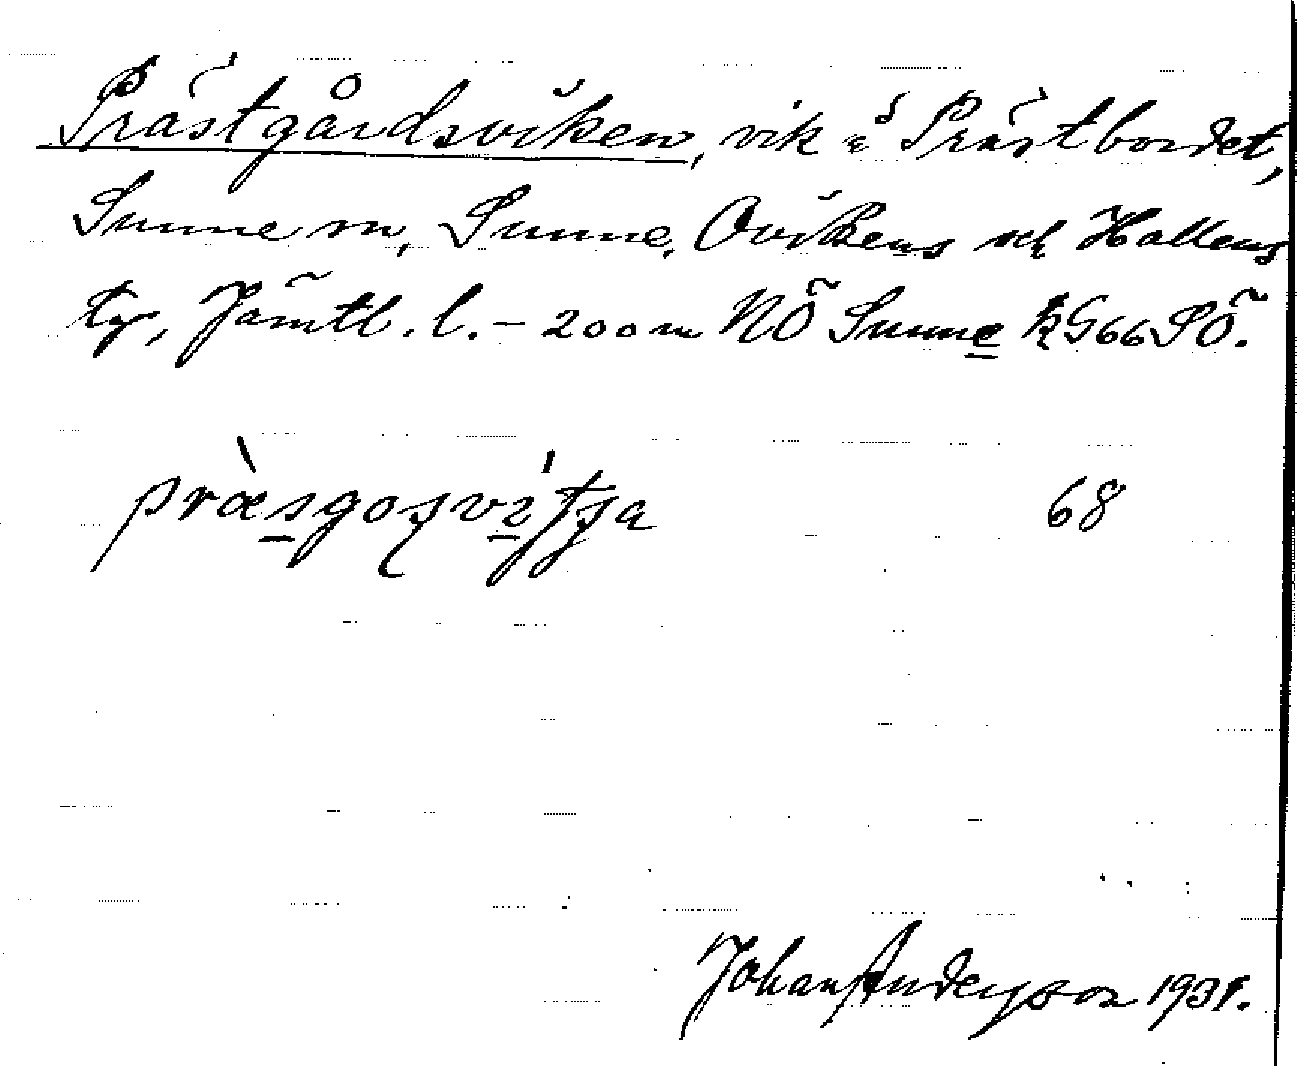 Prästgårdsviken, vik å Prästbordet,
Sunne sn, Sunne, Ovikens och Hallens
tg, Jämtl. l. – 200 m NÖ Sunne k G66 SÖ.
68
Johan Anderson 1931.